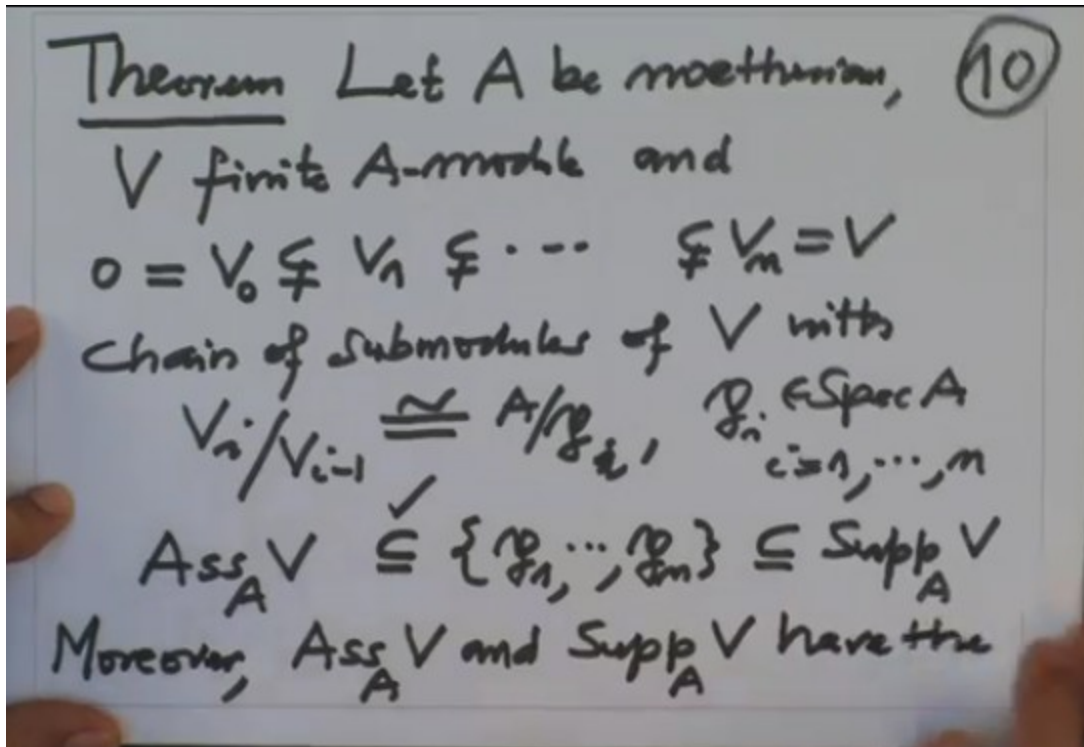 Theorem Let A be noetherian, ⑩
V finite A-module and
0 = V₀ ⊊ V₁ ⊊ ··· ⊊ Vₙ = V
Chain of submodules of V with
Vᵢ/Vᵢ₋₁ ≅ A/𝔭ᵢ, 𝔭ᵢ ∈ Spec A
i=1,···,n
✓
Ass_A V ⊆ {𝔭₁,···,𝔭ₙ} ⊆ Supp_A V
Moreover, Ass_A V and Supp_A V have the